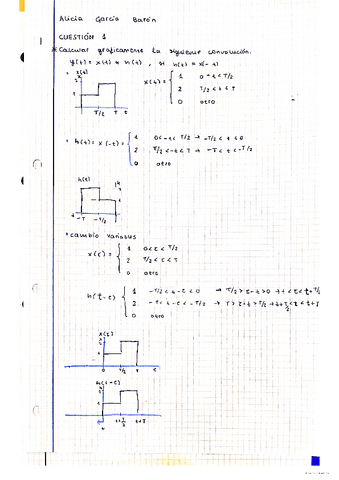 Alicia García Barón
CUESTIÓN 1
* Calcular gráficamente la siguiente convolución.
y(t) = x(t) * h(t), si h(t) = x(-t)
x(t)
x(t) = { 1 0 < t < T/2
2 T/2 < t < T
0 otro
T/2 T t
h(t) = x(-t) = { 1 0 < -t < T/2 → -T/2 < t < 0
2 T/2 < -t < T → -T < t < -T/2
0 otro
h(t)
-T
cambio variables
x(τ) = { 1 0 < τ < T/2
2 T/2 < τ < T
0 otro
h(t-τ) { 1 -T/2 < t-τ < 0 → T/2 > τ-t > 0 → t < τ < t+T/2
2 -T < t-τ < -T/2 → T > τ-t > T/2 → t+T/2 < τ < t+T
0 otro
x(τ)
0 T/2 T τ
h(t-τ)
t t+T/2 t+T